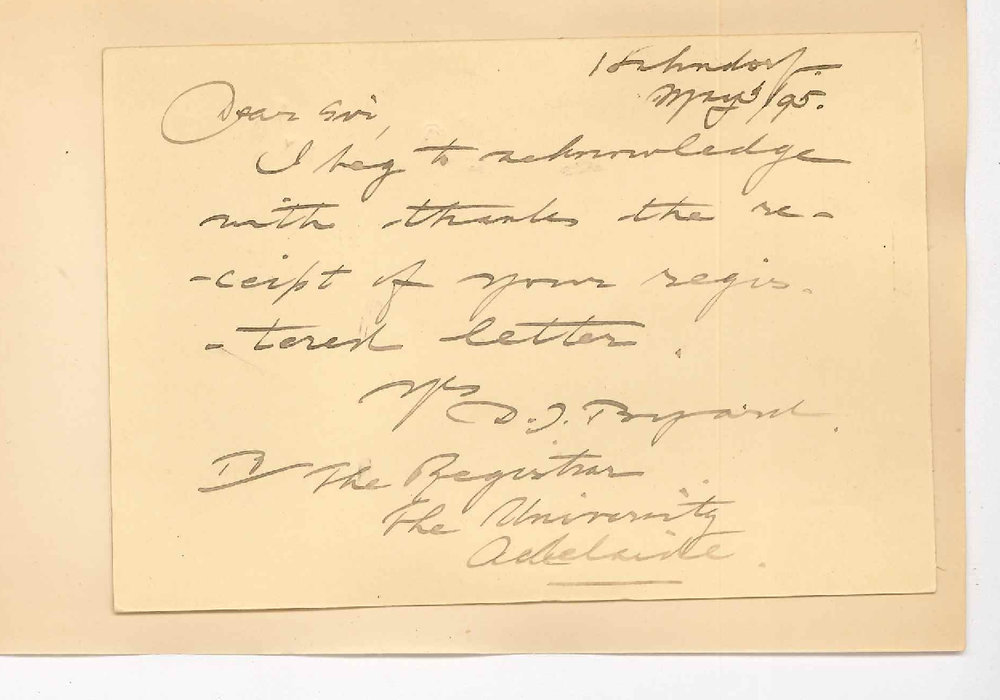 Hahndorf
May 3/95.
Dear Sir,
I beg to acknowledge
with thanks the re-
-ceipt of your regis-
-tered letter.
Yrs
D. J. Byard.
To The Registrar
The University
Adelaide.